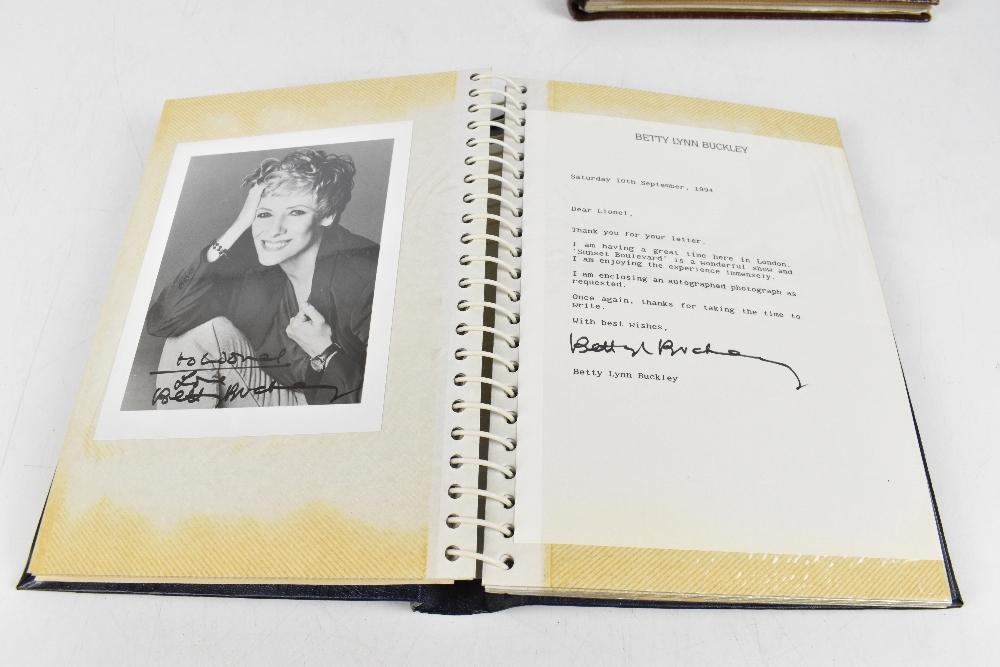 to Lionel
Love
Betty Buckley
BETTY LYNN BUCKLEY
Saturday 10th September, 1994
Dear Lionel,
Thank you for your letter.
I am having a great time here in London.
'Sunset Boulevard' is a wonderful show and
I am enjoying the experience immensely.
I am enclosing an autographed photograph as
requested.
Once again, thanks for taking the time to
write.
With best wishes,
Betty L Buckley
Betty Lynn Buckley